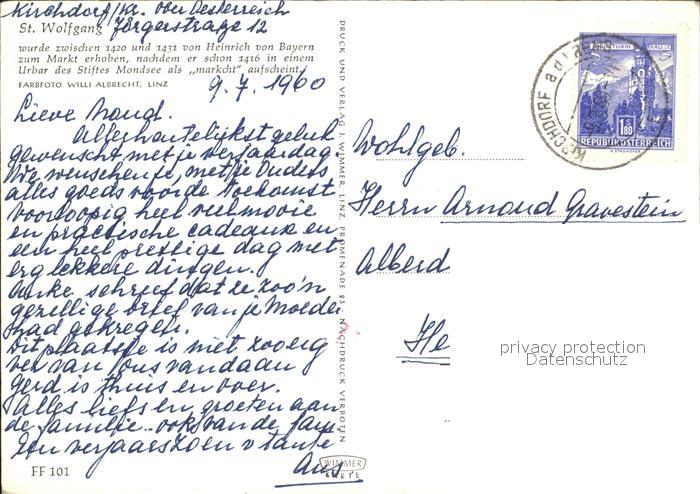 Kirchdorf/Kr. Ober Oesterreich
St. Wolfgang Jörgerstrasze 12
wurde zwischen 1420 und 1431 von Heinrich von Bayern
zum Markt erhoben, nachdem er schon 1416 in einem
Urbar des Stiftes Mondsee als „markcht" aufscheint.
FARBFOTO WILLI ALBRECHT, LINZ
9.7.1960
Lieve Noud.
Allerhartelijkst geluk
gewenscht met je verjaardag.
Wij wenschen je, met je Ouders
alles goeds voor de toekomst
voorloopig heel veel mooie
en practische cadeaux en
een heel prettige dag met
erg lekkere dingen.
schreef dat ze zoo'n
gezellige brief van je Moeder
had gekregen.
Dit plaatsje is niet zoo erg
ver van ons vandaan
Gerd is thuis en over.
Alles liefs en groeten aan
de familie ook van de fam.
Een verjaarszoen v tante
Aus
FF 101
DRUCK UND VERLAG J. WIMMER, LINZ, PROMENADE 23. NACHDRUCK VERBOTEN
WIMMER
KARTE
KIRCHDORF a. d.
1.80
REPUBLIK ÖSTERREICH
Wohlgeb.
Herrn Arnoud Gravestein
Alberd
He
privacy protection
Datenschutz